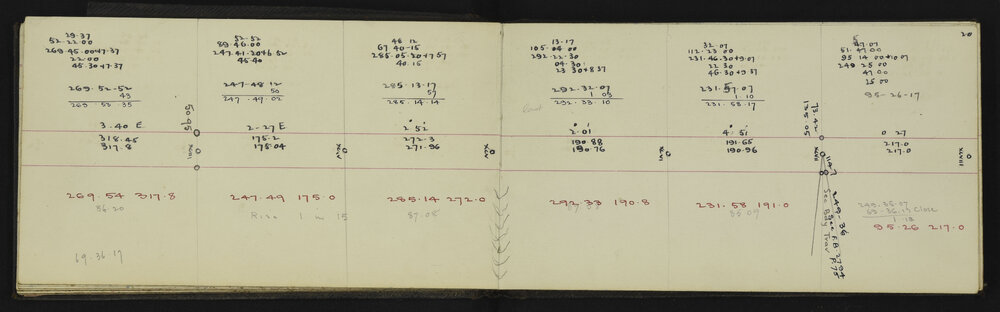 29.37
52.22.00
269.45.00+7.37
22.00
45.30+7.37
269.52-52
43
269.53.35
3.40 E
318.45
317.8
269.54 317.8
86.20
69.36.17
5095
52.52
89.46.00
247.41.20+6.52
45.40
247-48 12
50
247.49.02
2-27 E
175.2
175.04
247.49 175.0
Rise 1 in 15
XLIV
48 12
67 40-15
285.05 20+7.57
40.15
285.13.17
57
285.14.14
2° 52'
272.3
271.96
285.14 272.0
87.08
XLV
13.17
105.04 00
292.22.30
04.30
23 30+8 37
292.32.07
1 03
292.33.10
2.01
190.88
190.76
292.33 190.8
XLVI
32.07
112.23 00
231.46.30+9.07
22 30
46.30+9 37
231.57.07
1.10
231.58.17
4° 51'
191.65
190.96
231.58 191.0
85.09
XLVII
20
47.07
51.47 00
95 14 00+10 07
249 25 00
47 00
25 00
95-26-17
0 27
217.0
217.0
249.36.07
69.36.17 Close
1 18
95.26 217.0
XLVIII
249.36
See F.B. 2794 P.75
See Bdy Trav